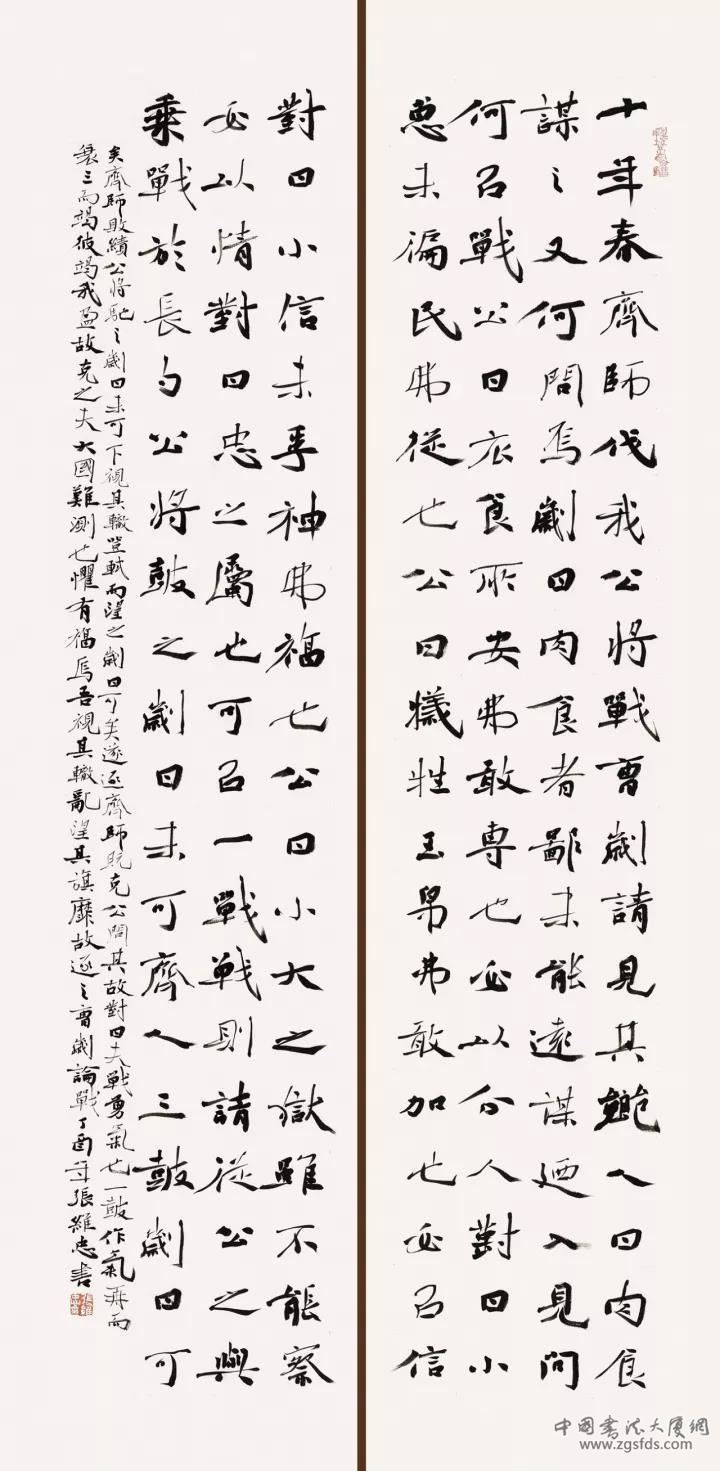 十年春齊師伐我公將戰曹劌請見其鄉人曰肉食
謀之又何間焉劌曰肉食者鄙未能遠謀迺入見問
何㠯戰公曰衣食所安弗敢專也必以分人對曰小
惠未徧民弗從也公曰犧牲玉帛弗敢加也必㠯信
對曰小信未孚神弗福也公曰小大之獄雖不能察
必以情對曰忠之屬也可㠯一戰戰則請從公之與
乘戰於長勺公將鼓之劌曰未可齊人三鼓劌曰可
矣齊師敗績公將馳之劌曰未可下視其轍登軾而望之劌曰可矣遂逐齊師既克公問其故對曰夫戰勇氣也一鼓作氣再而
衰三而竭彼竭我盈故克之夫大國難測也懼有福焉吾視其轍亂望其旗靡故逐之曹劌論戰丁酉年張維忠書
中国書法大厦網
www.zgsfds.com